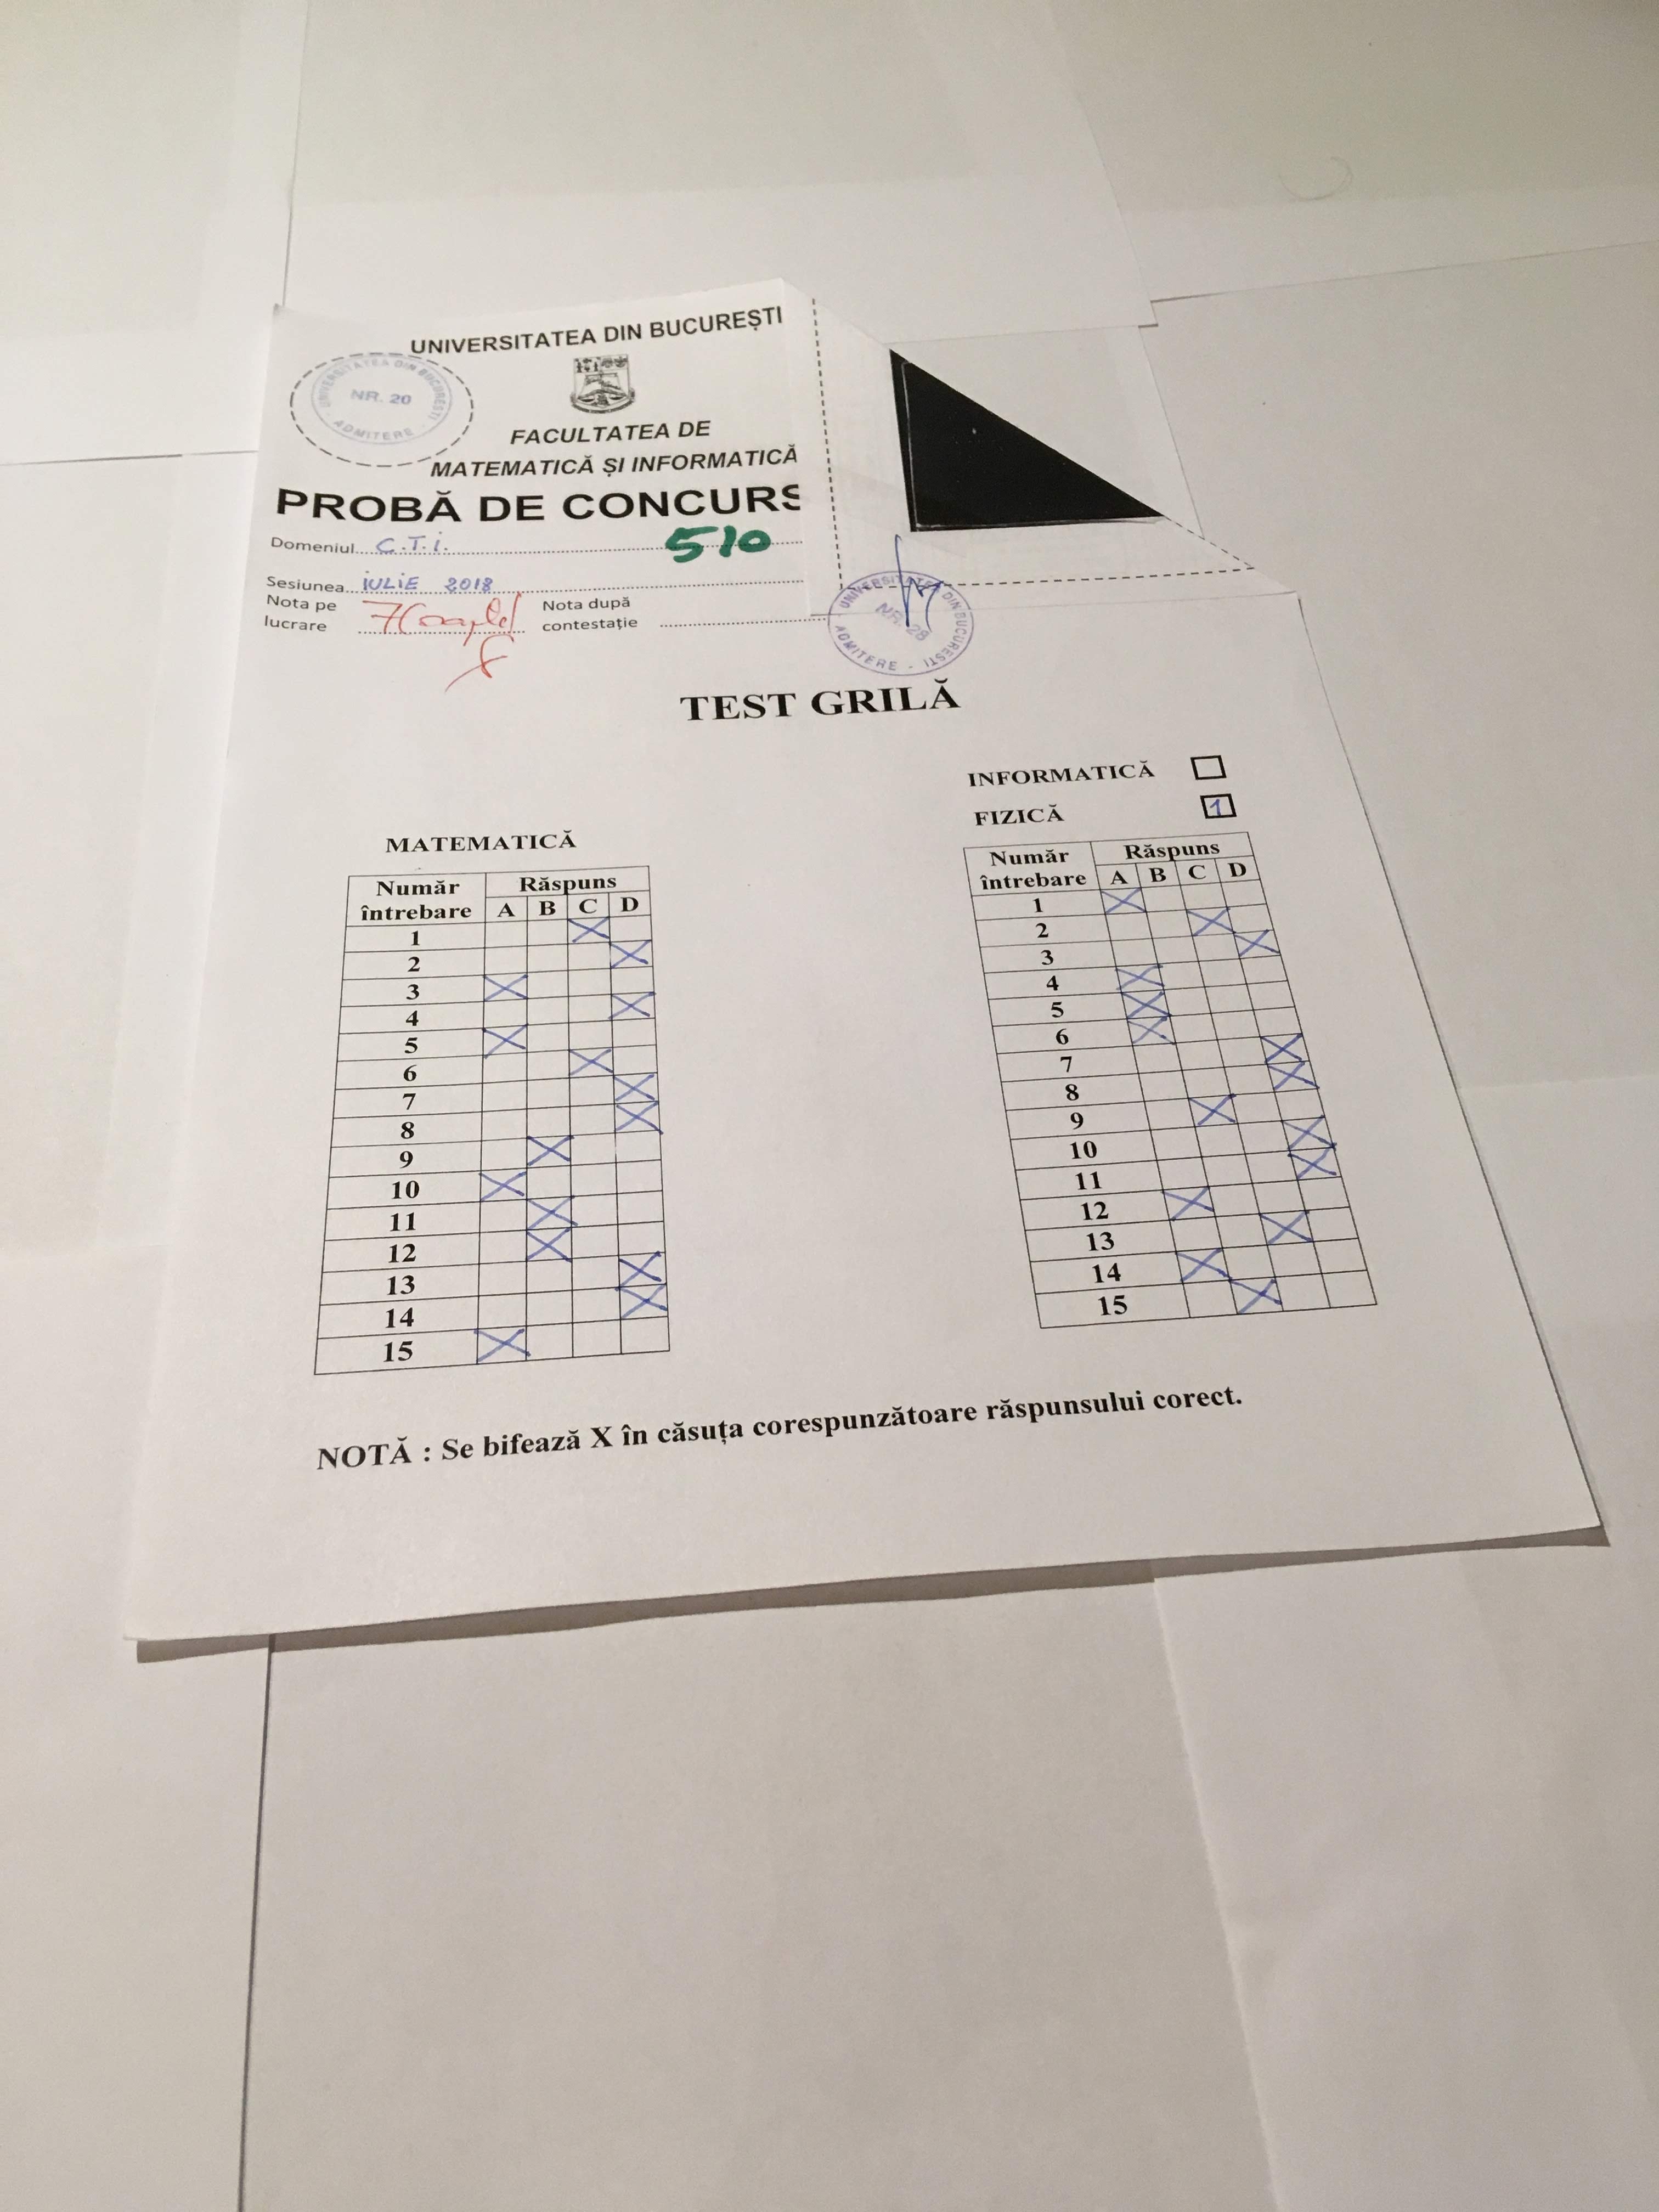 UNIVERSITATEA DIN BUCUREȘTI
UNIVERSITATEA DIN BUCUREȘTI
NR. 20
ADMITERE
FACULTATEA DE
MATEMATICĂ ȘI INFORMATICĂ
PROBĂ DE CONCURS
Domeniul C.T.I. 510
Sesiunea IULIE 2018
Nota pe lucrare 7(șapte)
Nota după contestație
UNIVERSITATEA DIN BUCUREȘTI
NR. 28
ADMITERE
TEST GRILĂ
INFORMATICĂ
FIZICĂ 1
MATEMATICĂ
Număr întrebare Răspuns
A B C D
1 X
2 X
3 X
4 X
5 X
6 X
7 X
8 X
9 X
10 X
11 X
12 X
13 X
14 X
15 X
Număr întrebare Răspuns
A B C D
1 X
2 X
3 X
4 X
5 X
6 X
7 X
8 X
9 X
10 X
11 X
12 X
13 X
14 X
15 X
NOTĂ : Se bifează X în căsuța corespunzătoare răspunsului corect.